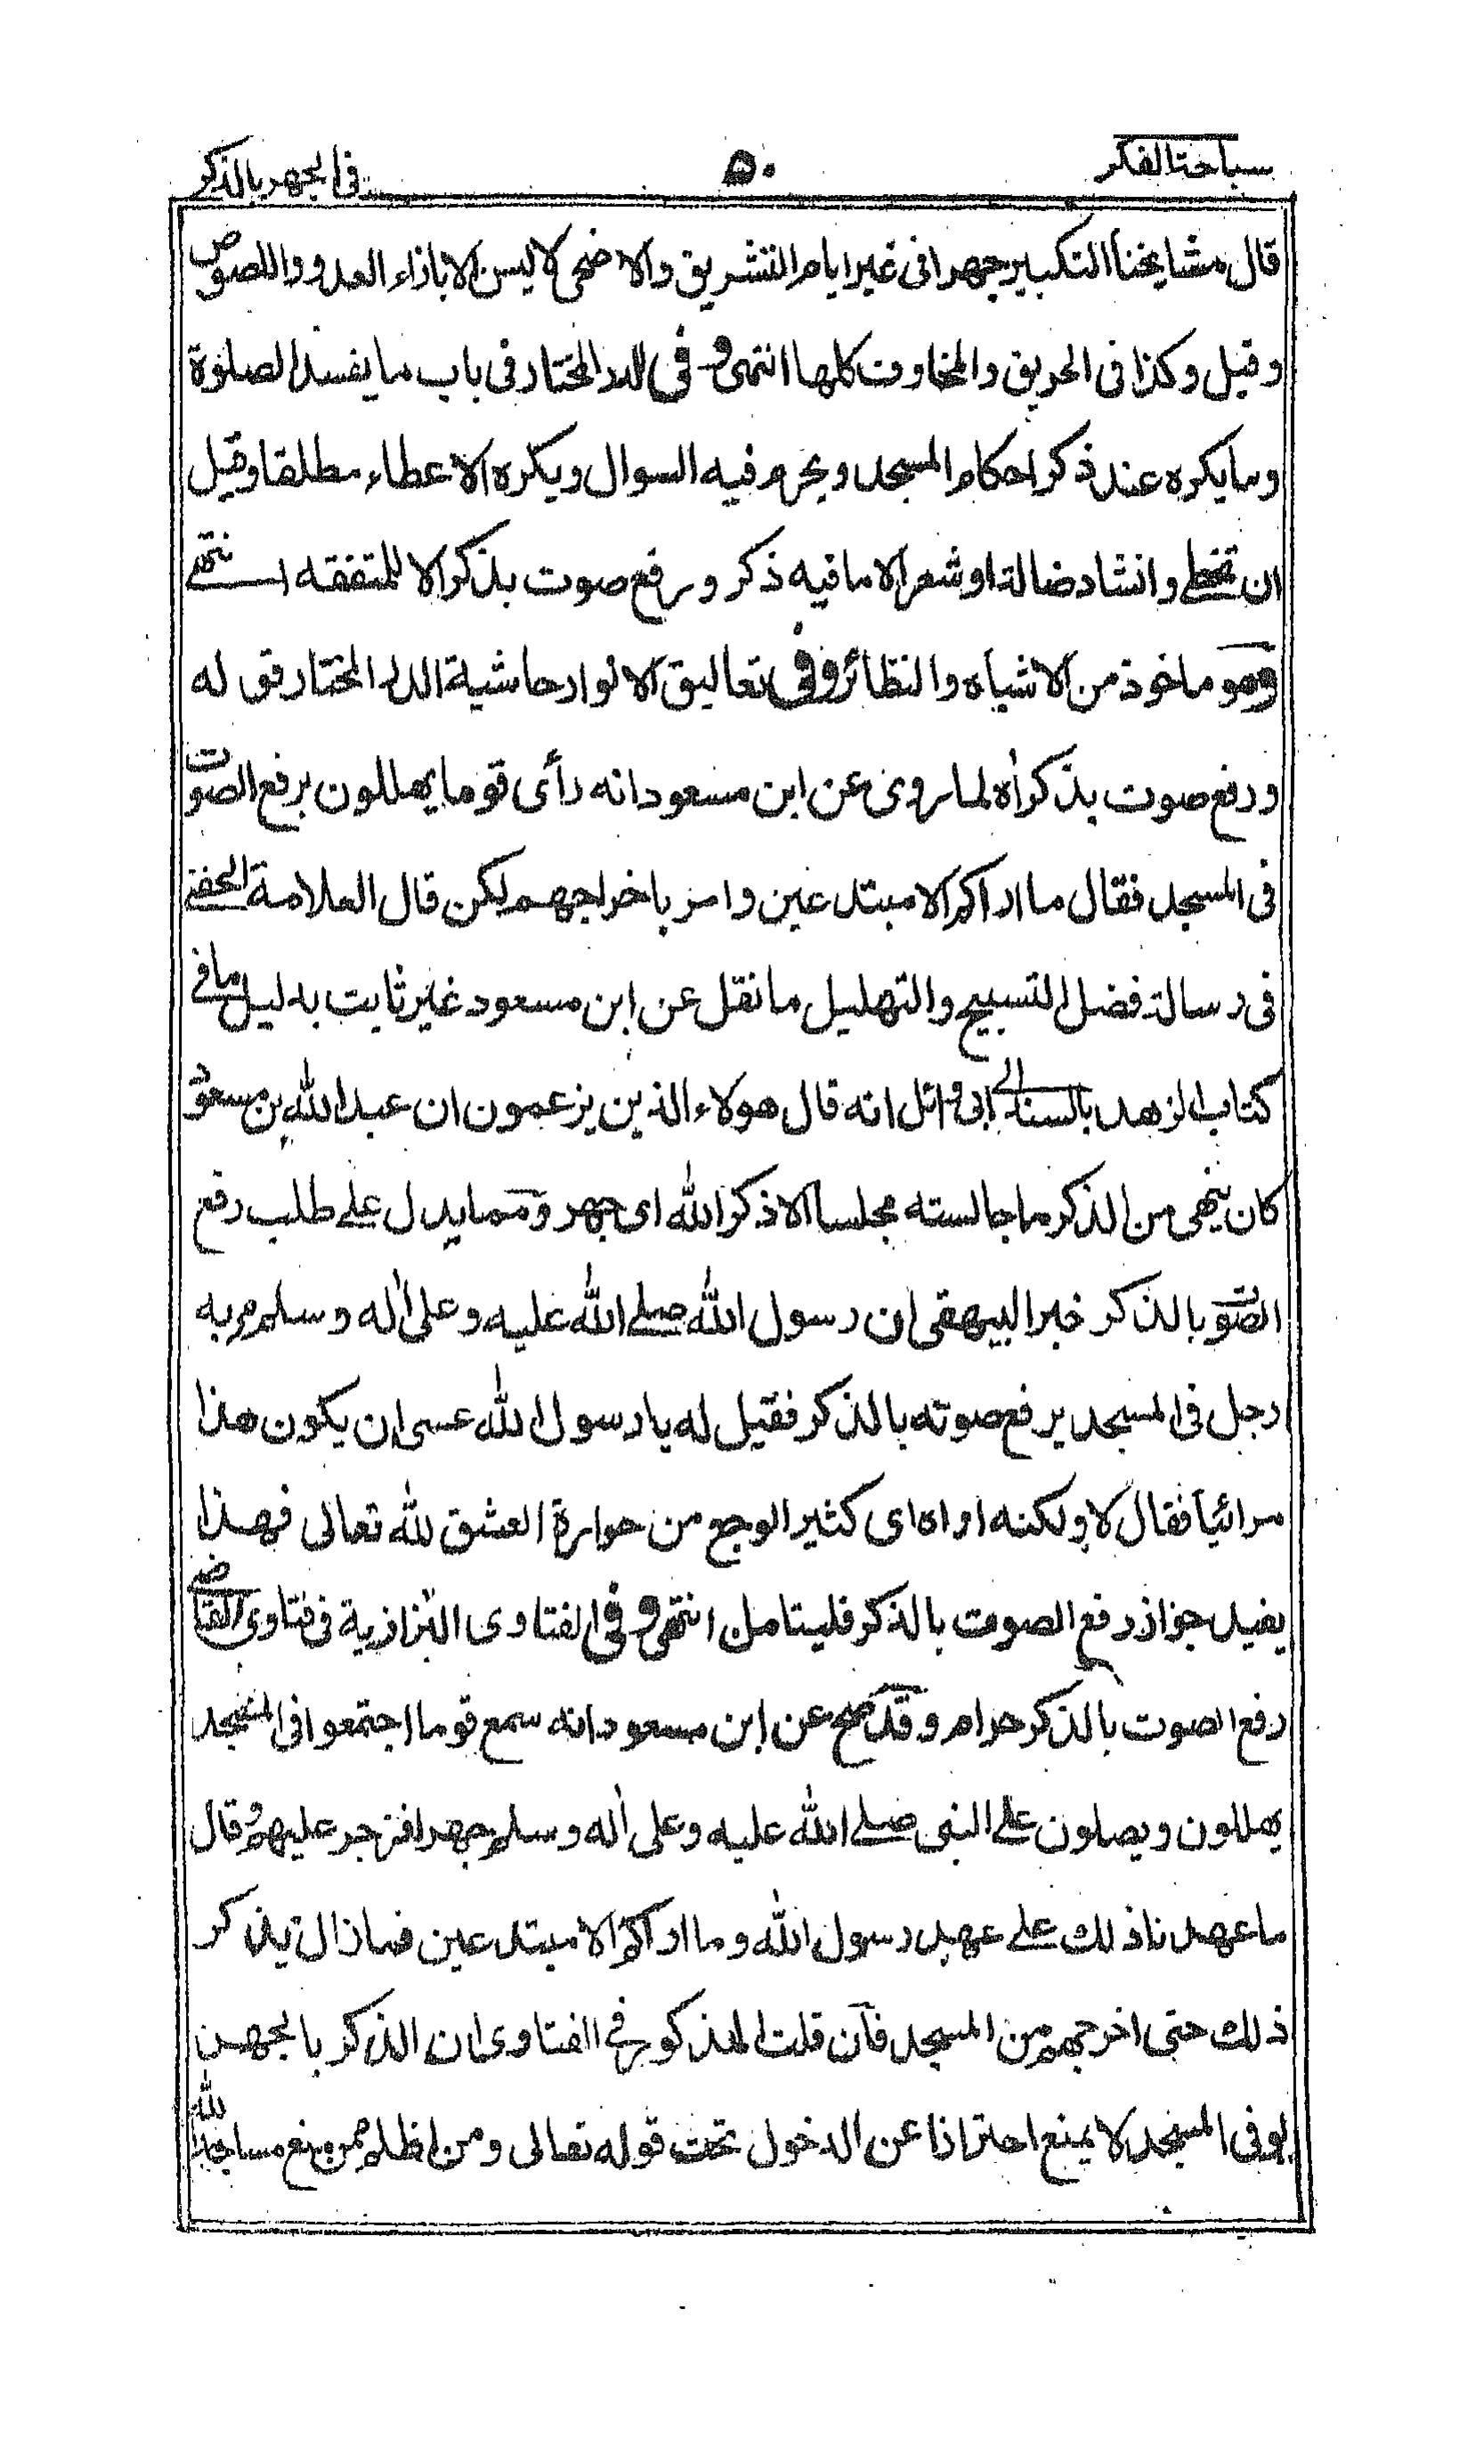 سباحة الفكر ٥٠ فى الجهر بالذكر
قال مشايخنا التكبير جهرا فى غير ايام التشريق والاضحى لا ليس الا بازاء العدو واللصوص
وقيل وكذا فى الحريق والمخاوف كلها انتهى وفى الدر المختار فى باب ما يفسد الصلوة
وما يكره عند ذكر احكام المسجد ويحرم فيه السوال ويكره الاعطاء مطلقا وقيل
ان تخطى وانشاد ضالة او شعر الا ما فيه ذكر ورفع صوت بذكر الا للمتفقه انتهى
وهو ماخوذ من الاشباه والنظائر وفى تعاليق الانوار حاشية الدر المختار قوله
ورفع صوت بذكر اه لما روى عن ابن مسعود انه رأى قوما يهللون برفع الصوت
فى المسجد فقال ما اراكم الا مبتدعين وامر باخراجهم لكن قال العلامة الحفنى
فى رسالة فضل التسبيح والتهليل ما نقل عن ابن مسعود غير ثابت بدليل ما فى
كتاب الزهد بالسند الى ابى وائل انه قال هولاء الذين يزعمون ان عبد الله بن مسعود
كان ينهى من الذكر ما جالسته مجلسا الا ذكر الله اى جهر ومما يدل على طلب رفع
الصوت بالذكر خبر البيهقى ان رسول الله صلى الله عليه وعلى اله وسلم مر به
رجل فى المسجد يرفع صوته بالذكر فقيل له يا رسول الله عسى ان يكون هذا
مرائيا فقال لا ولكنه اواه اى كثير الوجع من حرارة العشق لله تعالى فهذا
يفيد جواز رفع الصوت بالذكر فليتامل انتهى وفى الفتاوى البزازية فى فتاوى القاضى
رفع الصوت بالذكر حرام وقد صح عن ابن مسعود انه سمع قوما اجتمعوا فى المسجد
يهللون ويصلون على النبى صلى الله عليه وعلى اله وسلم جهرا فزجر عليهم وقال
ما عهدنا ذلك على عهد رسول الله وما اراكم الا مبتدعين فما زال يذكر
ذلك حتى اخرجهم من المسجد فان قلت المذكور فى الفتاوى ان الذكر بالجهر
لو فى المسجد لا يمنع احترازا عن الدخول تحت قوله تعالى ومن اظلم ممن منع مساجد الله